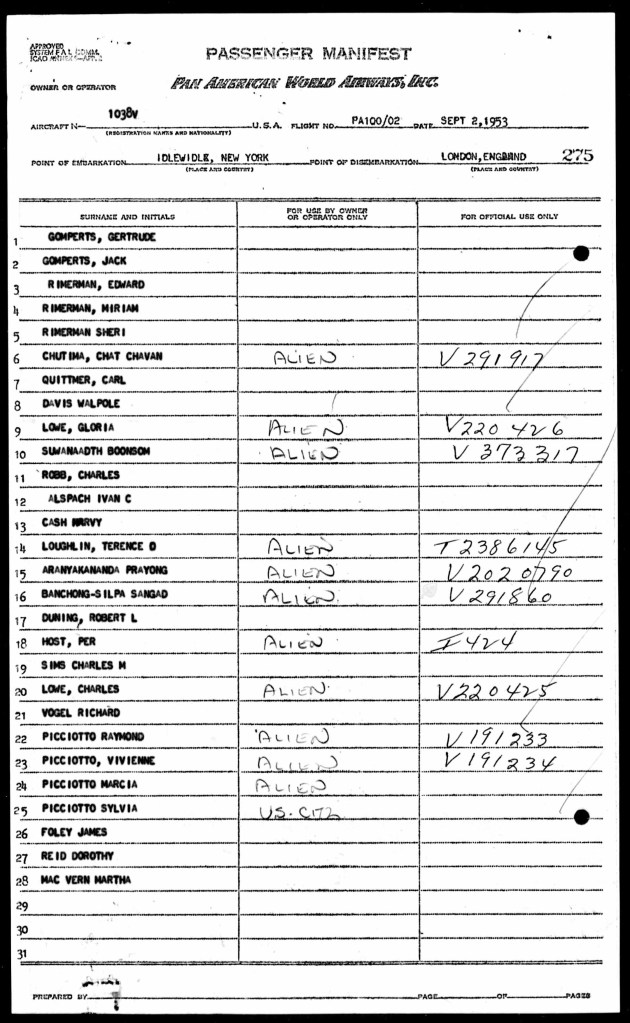 APPROVED
SYSTEM F.A.L. COMM.
PASSENGER MANIFEST
PAN AMERICAN WORLD AIRWAYS, INC.
OWNER OR OPERATOR
AIRCRAFT N- 1038V U.S.A. FLIGHT NO. PA100/02 DATE SEPT 2,1953
(REGISTRATION MARKS AND NATIONALITY)
POINT OF EMBARKATION IDLEWIDLE, NEW YORK POINT OF DISEMBARKATION LONDON,ENGBAND 275
(PLACE AND COUNTRY) (PLACE AND COUNTRY)
SURNAME AND INITIALS FOR USE BY OWNER OR OPERATOR ONLY FOR OFFICIAL USE ONLY
1 GOMPERTS, GERTRUDE
2 GOMPERTS, JACK
3 RIMERMAN, EDWARD
4 RIMERMAN, MIRIAM
5 RIMERMAN SHERI
6 CHUTIMA, CHAT CHAVAN ALIEN V 291917
7 QUITTNER, CARL
8 DAVIS WALPOLE
9 LOWE, GLORIA ALIEN V220426
10 SUWANAADTH BOONSOM ALIEN V 373317
11 ROBB, CHARLES
12 ALSPACH IVAN C
13 CASH HARVY
14 LOUGHLIN, TERENCE O ALIEN T2386145
15 ARANYAKANANDA PRAYONG ALIEN V2020790
16 BANCHONG-SILPA SANGAD ALIEN V291860
17 DUNING, ROBERT L
18 HOST, PER ALIEN I424
19 SIMS CHARLES M
20 LOWE, CHARLES ALIEN V220425
21 VOGEL RICHARD
22 PICCIOTTO RAYMOND ALIEN V191233
23 PICCIOTTO, VIVIENNE ALIEN V191234
24 PICCIOTTO MARCIA ALIEN
25 PICCIOTTO SYLVIA US.CITZ
26 FOLEY JAMES
27 REID DOROTHY
28 MAC VERN MARTHA
29
30
31
PREPARED BY PAGE OF PAGES